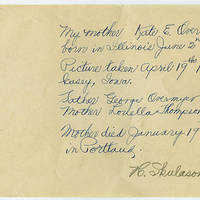 My mother Kate E. Over
born in Illinois June 2nd
Picture taken April 19th 1
Casey, Iowa.
Father George Overmyer
Mother Lovella Thompson
Mother died January 19
in Portland,
H. Skulason